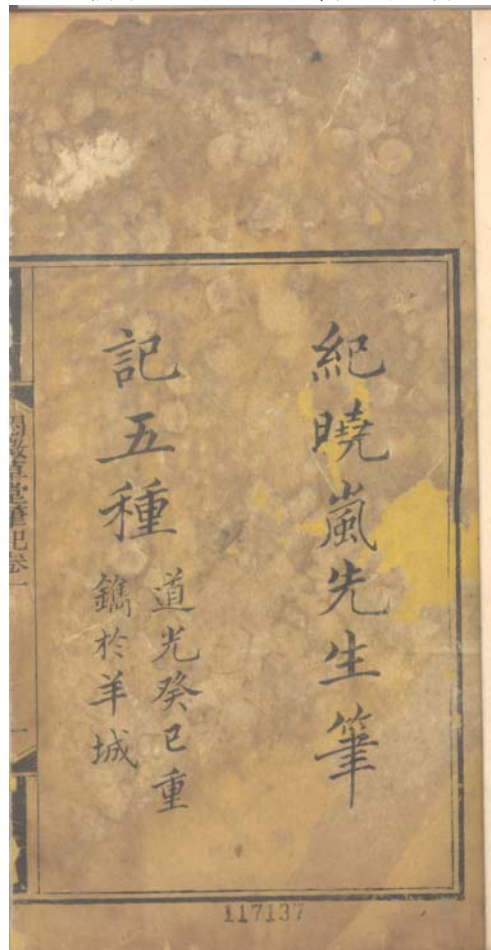 紀曉嵐先生筆
記五種
道光癸巳重
鐫於羊城
閱微草堂筆記卷一
一
117137